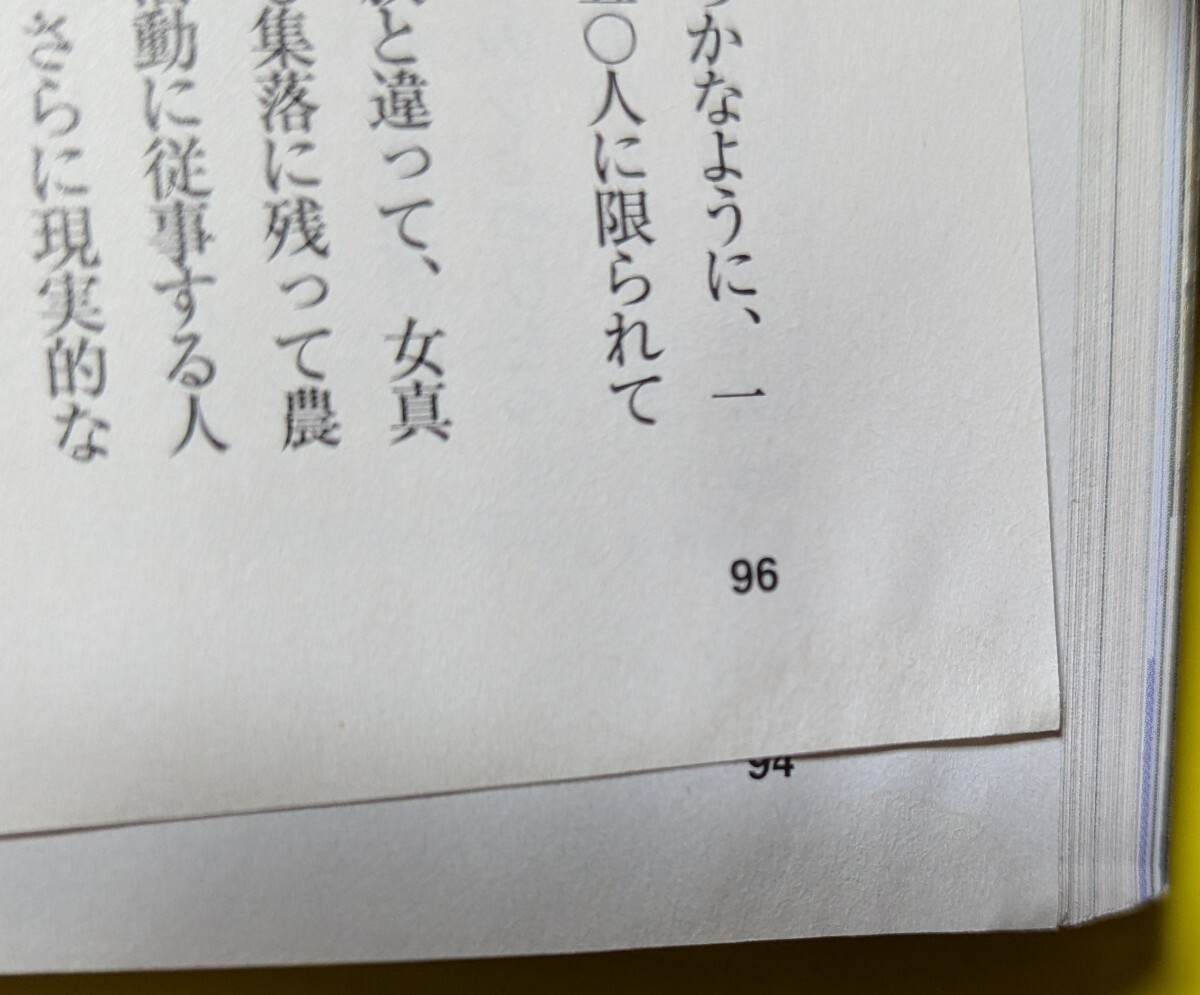 かなように、一
〇人に限られて
と違って、女真
集落に残って農
動に従事する人
さらに現実的な
96
94